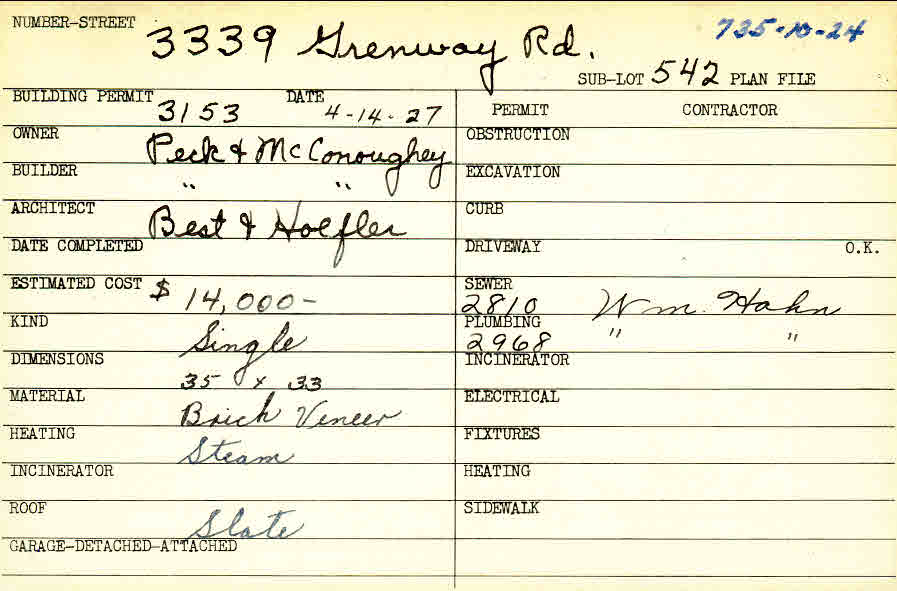 NUMBER-STREET 3339 Grenway Rd. 735-10-24
SUB-LOT 542 PLAN FILE
BUILDING PERMIT 3153 DATE 4-14-27
PERMIT CONTRACTOR
OWNER Peck & McConoughey
OBSTRUCTION
BUILDER " "
EXCAVATION
ARCHITECT Best & Hoefler
CURB
DATE COMPLETED
DRIVEWAY O.K.
ESTIMATED COST $ 14,000-
SEWER 2810 Wm. Hahn
KIND Single
PLUMBING 2968 " "
DIMENSIONS 35 x 33
INCINERATOR
MATERIAL Brick Veneer
ELECTRICAL
HEATING Steam
FIXTURES
INCINERATOR
HEATING
ROOF Slate
SIDEWALK
GARAGE-DETACHED-ATTACHED